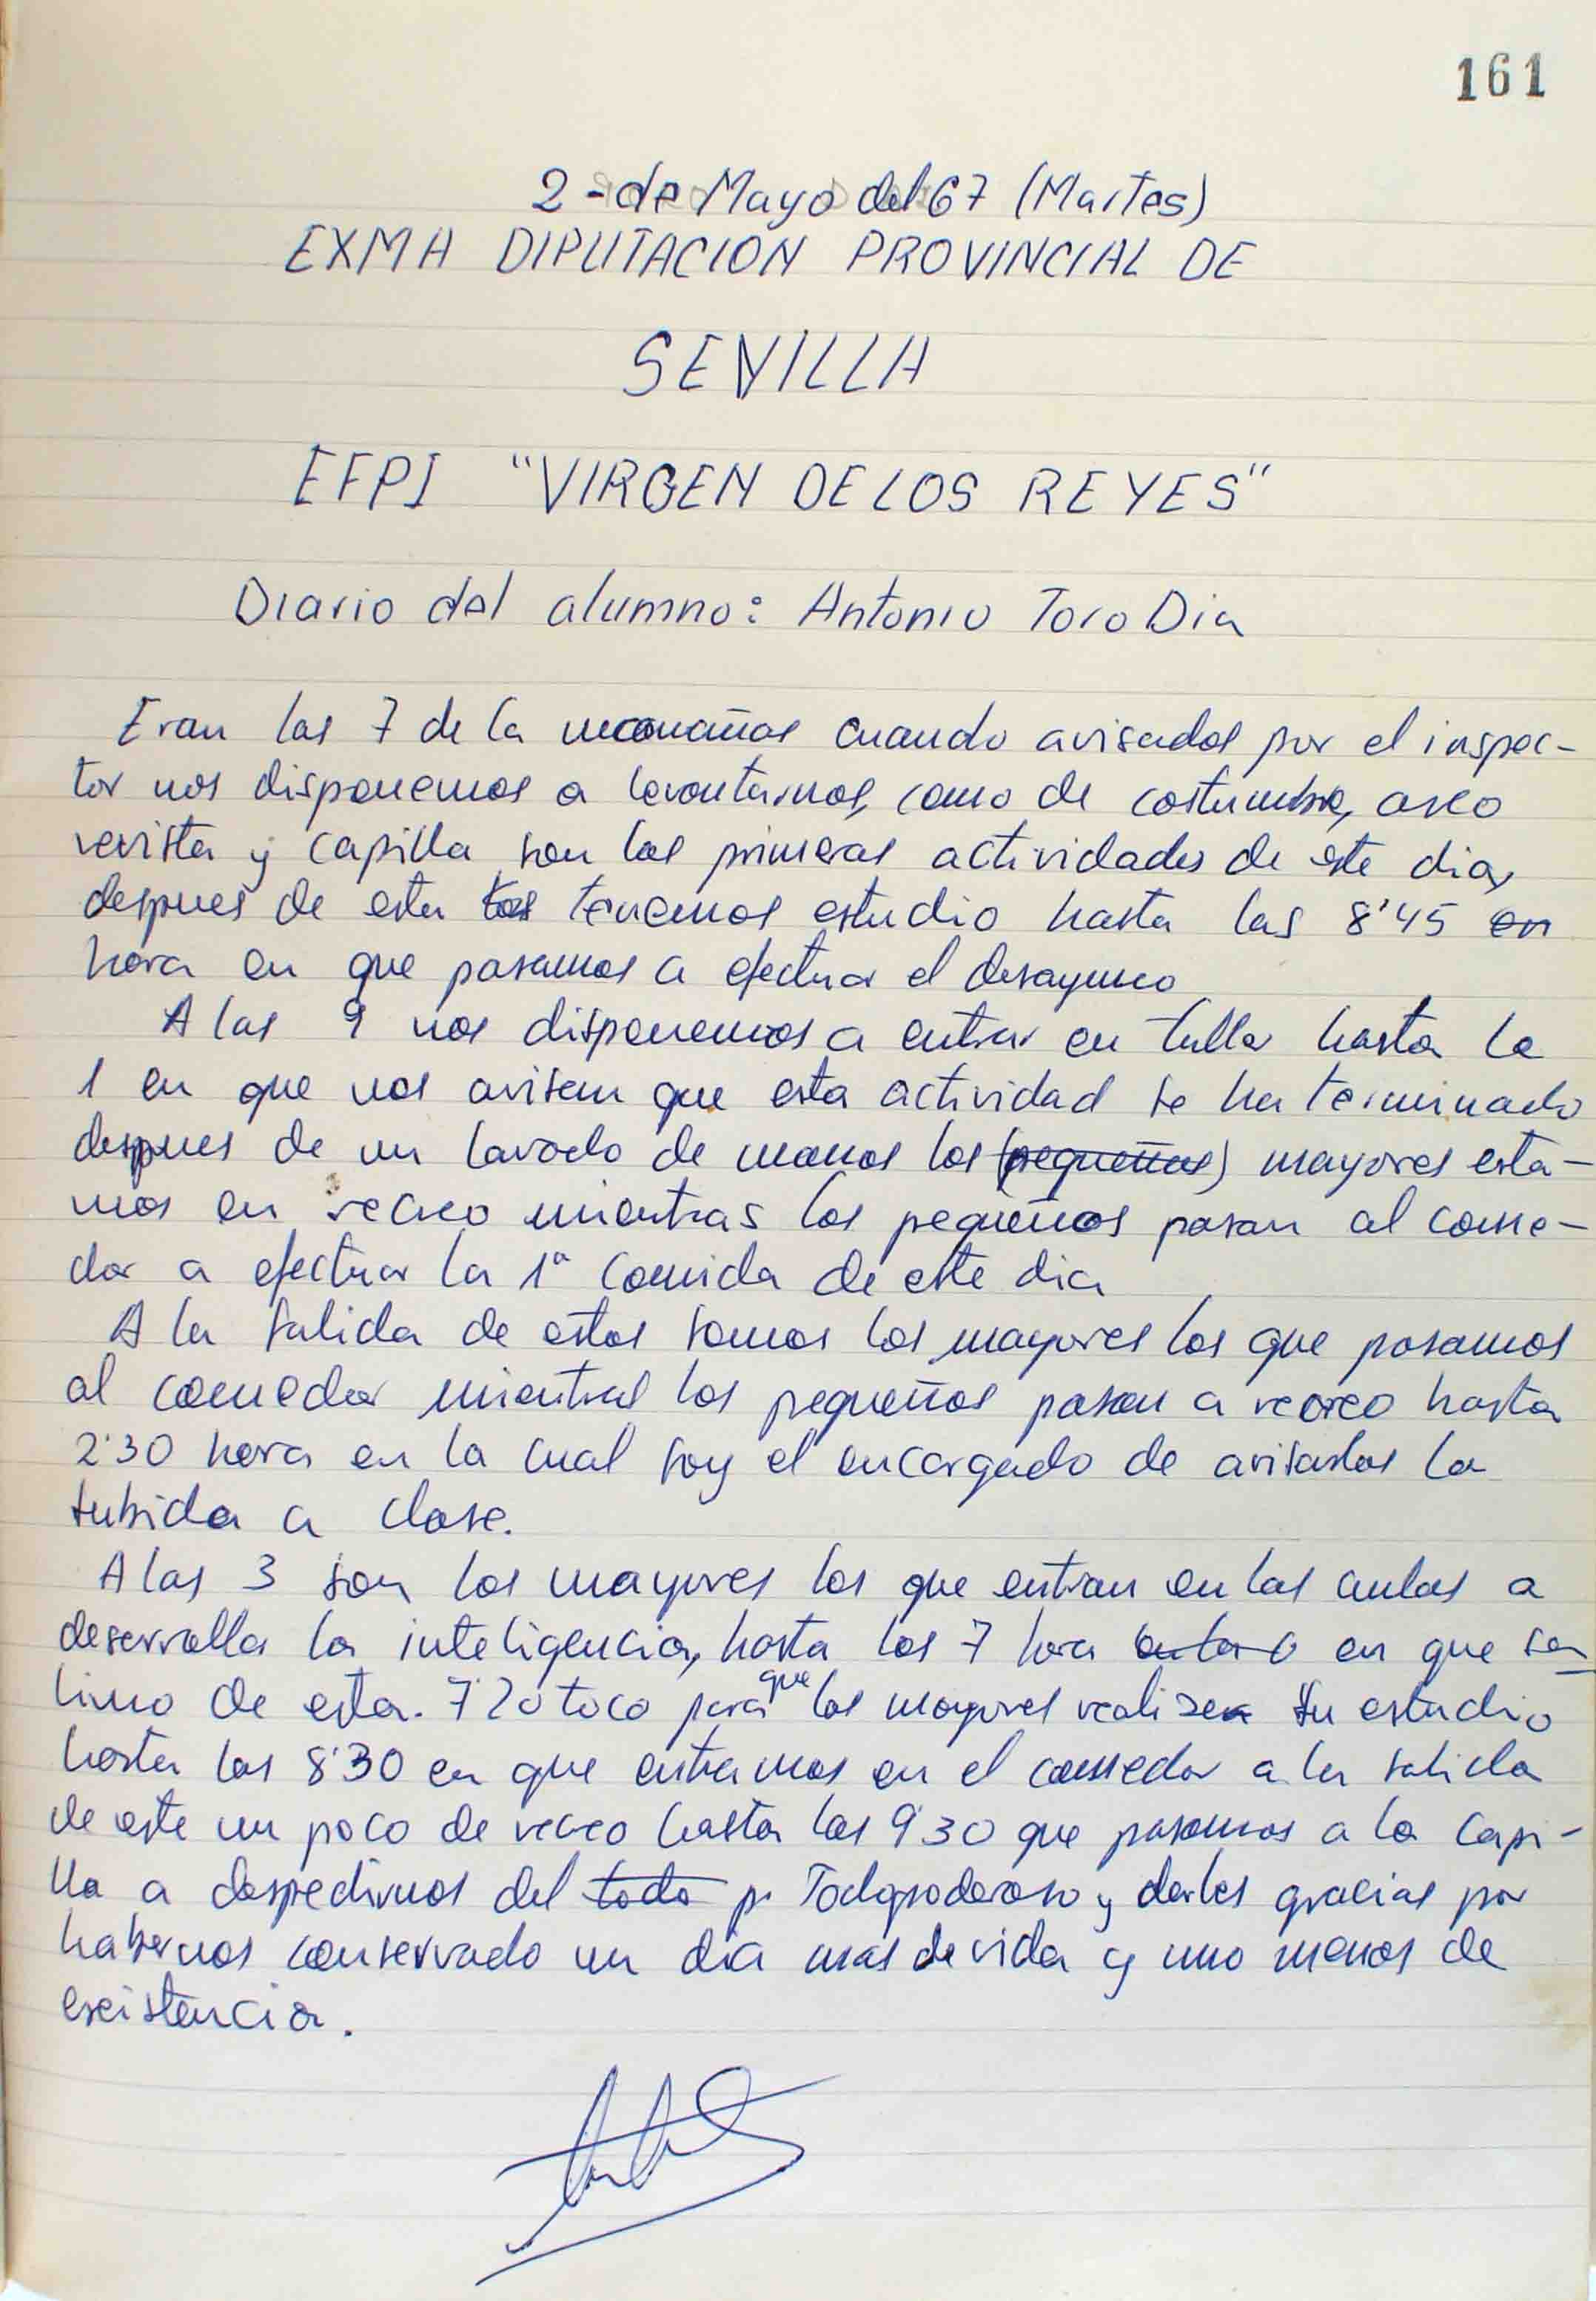 161
2 - de Mayo del 67 (Martes)
EXMA DIPUTACION PROVINCIAL DE
SEVILLA
EFPI "VIRGEN DE LOS REYES"
Diario del alumno: Antonio Toro Dia
Eran las 7 de la mañana cuando avisados por el inspec-
tor nos disponemos a levantarnos, como de costumbre, aseo
revista y capilla son las primeras actividades de este dia,
despues de esta tenemos estudio hasta las 8'45 en
hora en que pasamos a efectuar el desayuno
A las 9 nos disponemos a entrar en taller hasta la
1 en que nos avisan que esta actividad se ha terminado
despues de un lavado de manos los (pequeños) mayores esta-
mos en recreo mientras los pequeños pasan al come-
dor a efectuar la 1ª comida de este dia
A la salida de estos somos los mayores los que pasamos
al comedor mientras los pequeños pasan a recreo hasta
2'30 hora en la cual soy el encargado de avisarlos la
subida a clase.
A las 3 son los mayores los que entran en las aulas a
deserrolla la inteligencia, hasta las 7 hora en que sa
limo de esta. 7'20 toco para que los mayores realizen su estudio
hasta las 8'30 en que entramos en el comedor a la salida
de este un poco de recreo hasta las 9'30 que pasamos a la capi-
lla a despedirnos del todo p. Todopoderoso y darles gracias por
habernos conservado un dia mas de vida y uno menos de
existencia.